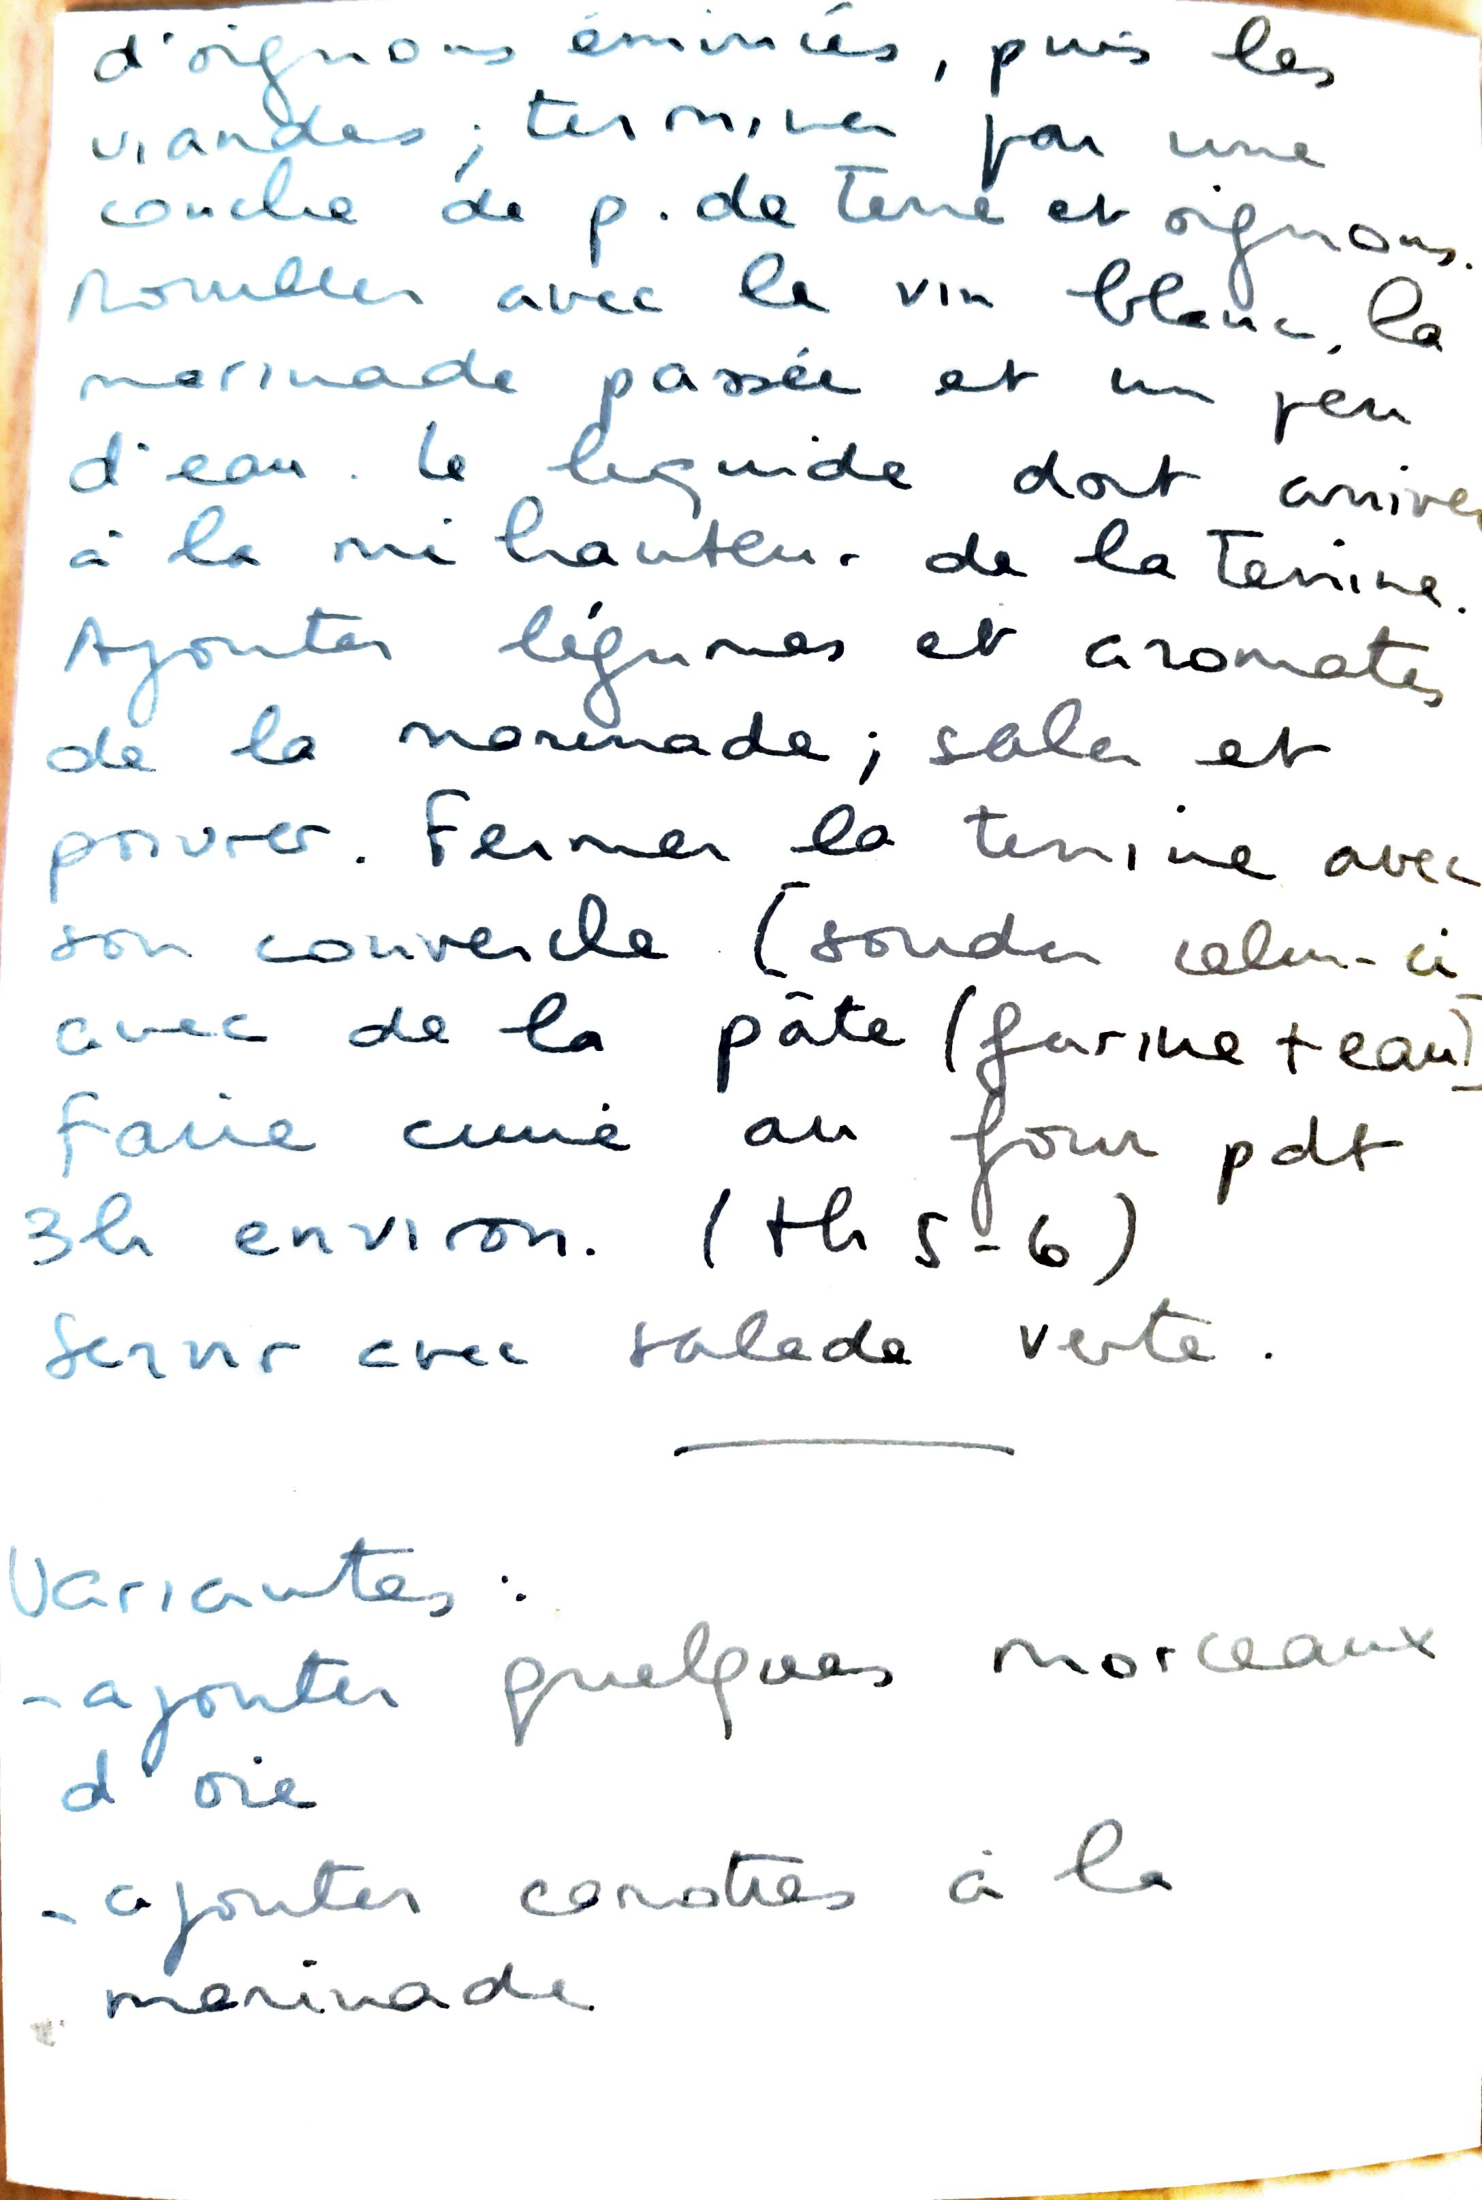 d'oignons émincés, puis les
viandes ; terminer par une
couche de p. de Terre et oignons.
Mouiller avec le vin blanc, la
marinade passée et un peu
d'eau. Le liquide doit arriver
à la mi hauteur de la Terrine.
Ajouter légumes et aromates
de la marinade ; saler et
poivrer. Fermer la terrine avec
son couvercle [souder celui-ci
avec de la pâte (farine + eau)]
Faire cuire au four pdt
3h environ. (th 5-6)
Servir avec salade verte.
Variantes :
- ajouter quelques morceaux
d'oie
- ajouter carottes à la
marinade